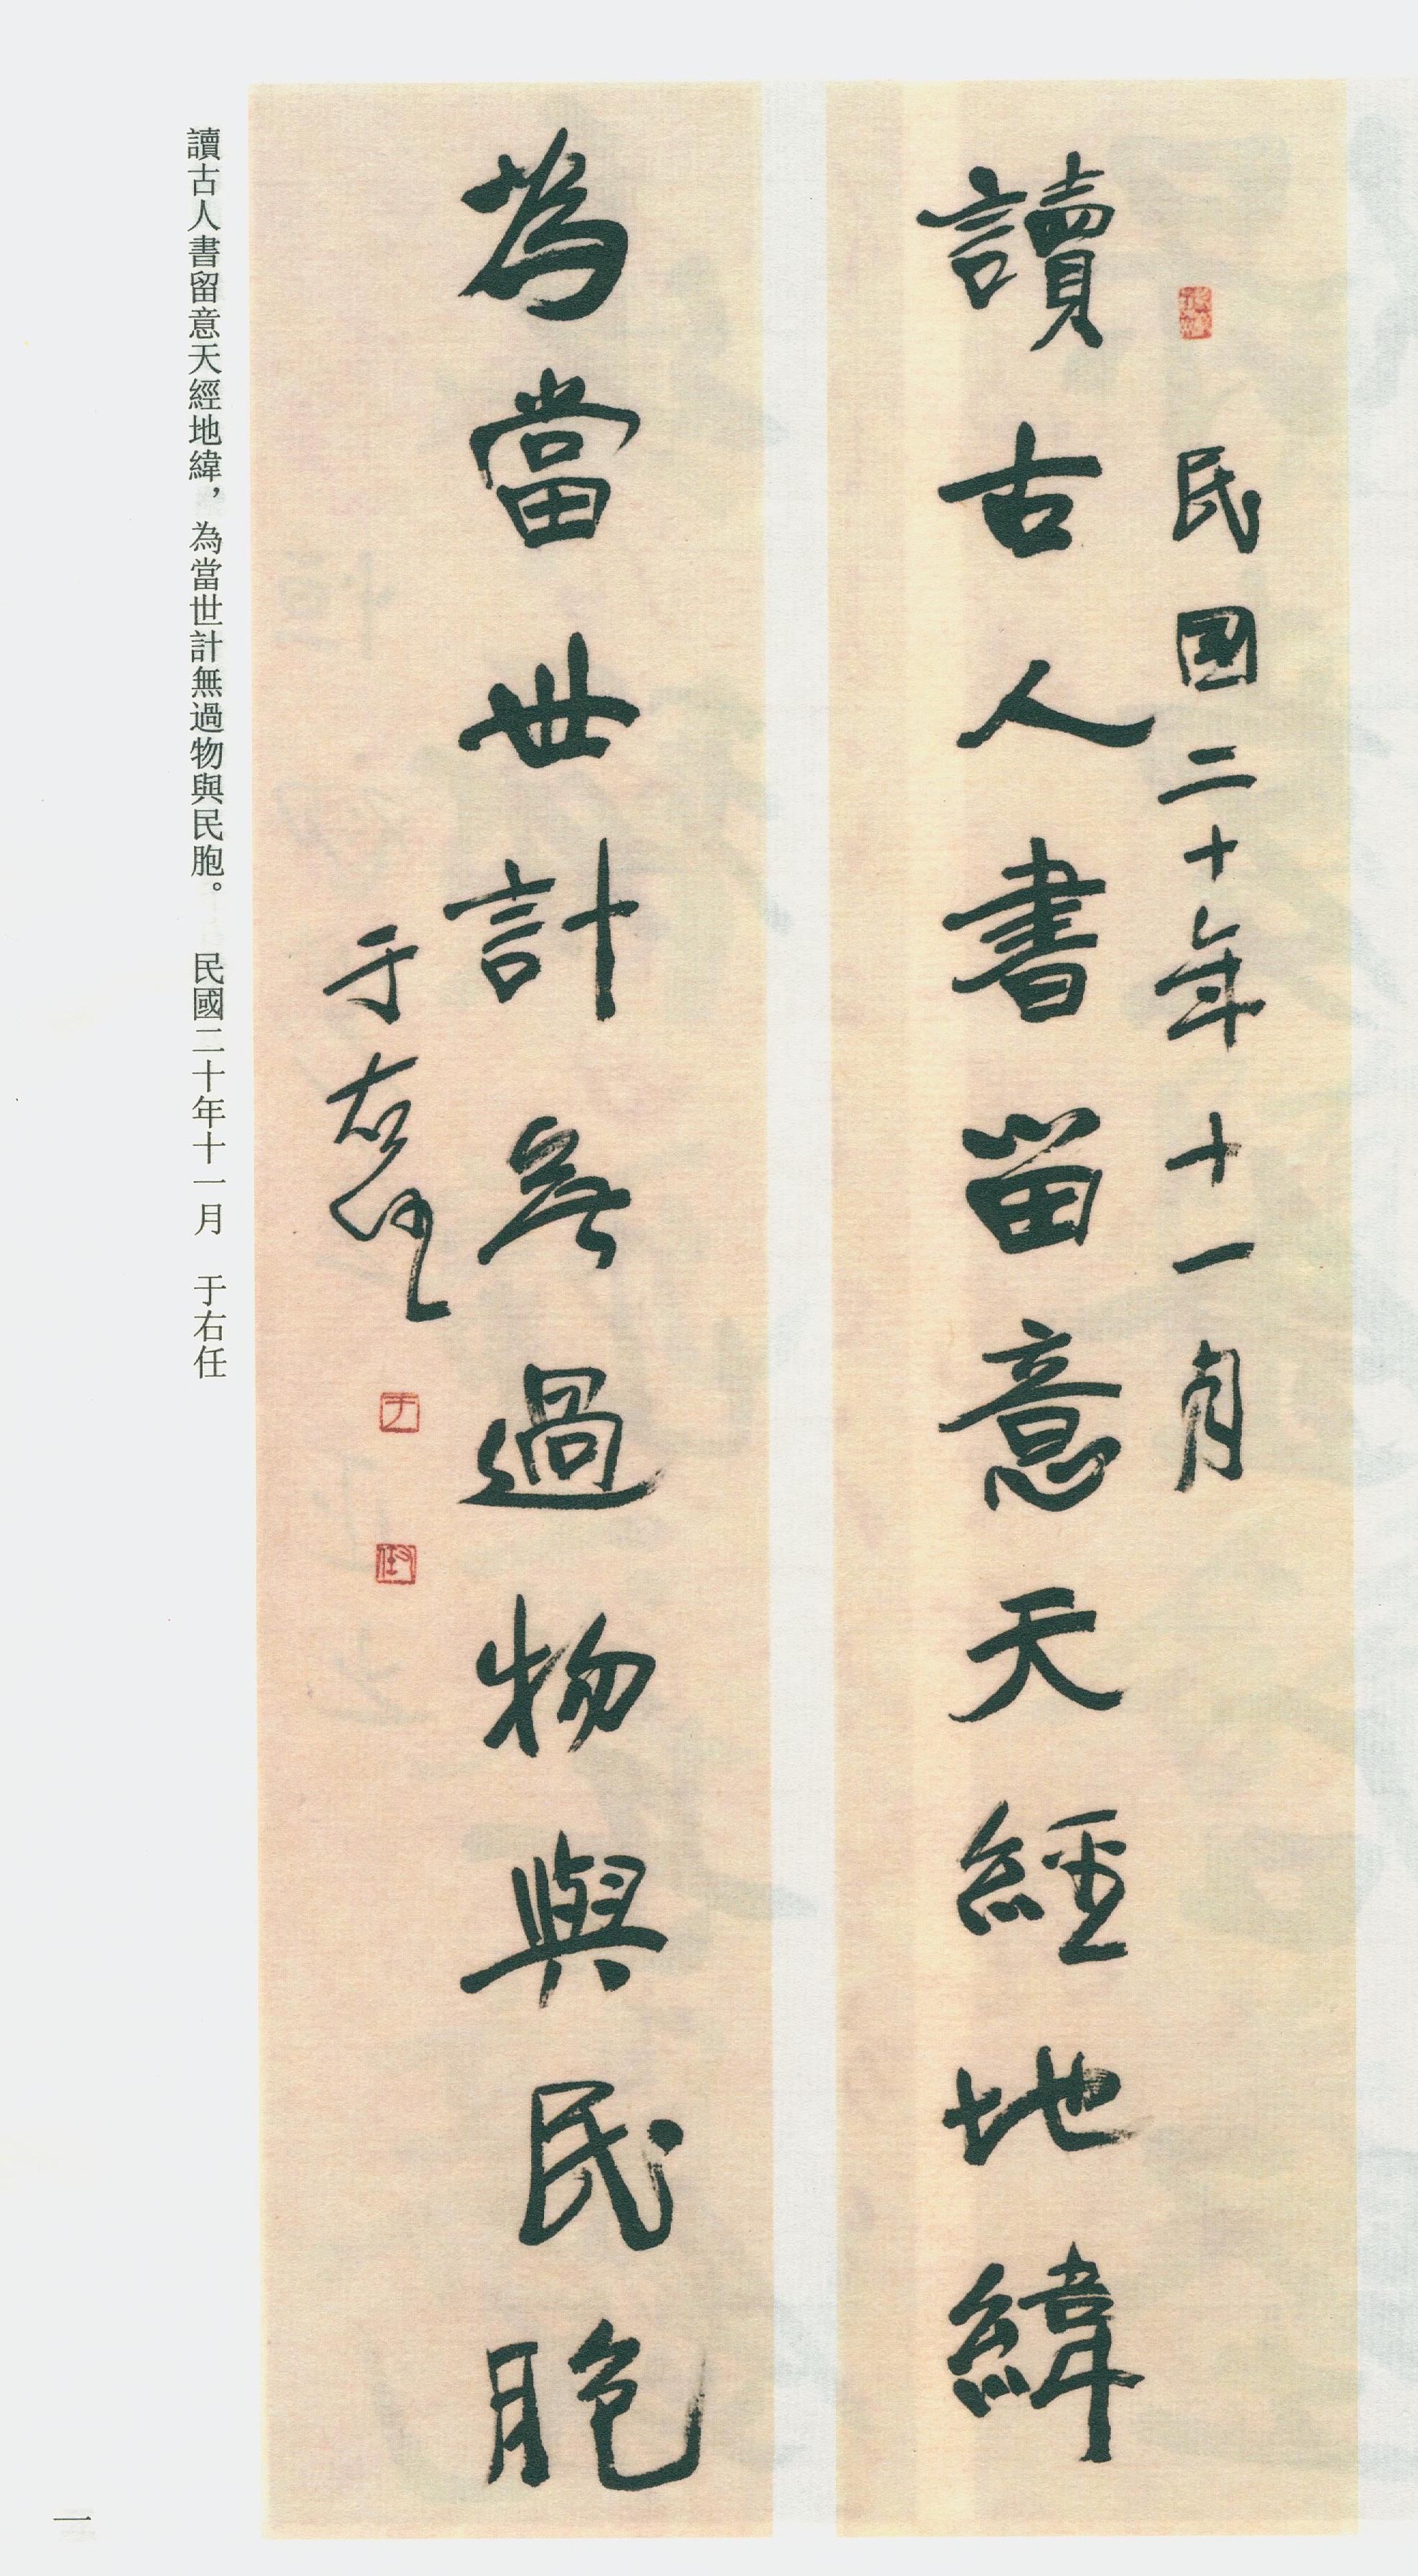 民國二十年十一月
讀古人書留意天經地緯
為當世計無過物與民胞
于右任
于
右任
讀古人書留意天經地緯，為當世計無過物與民胞。 民國二十年十一月 于右任
一